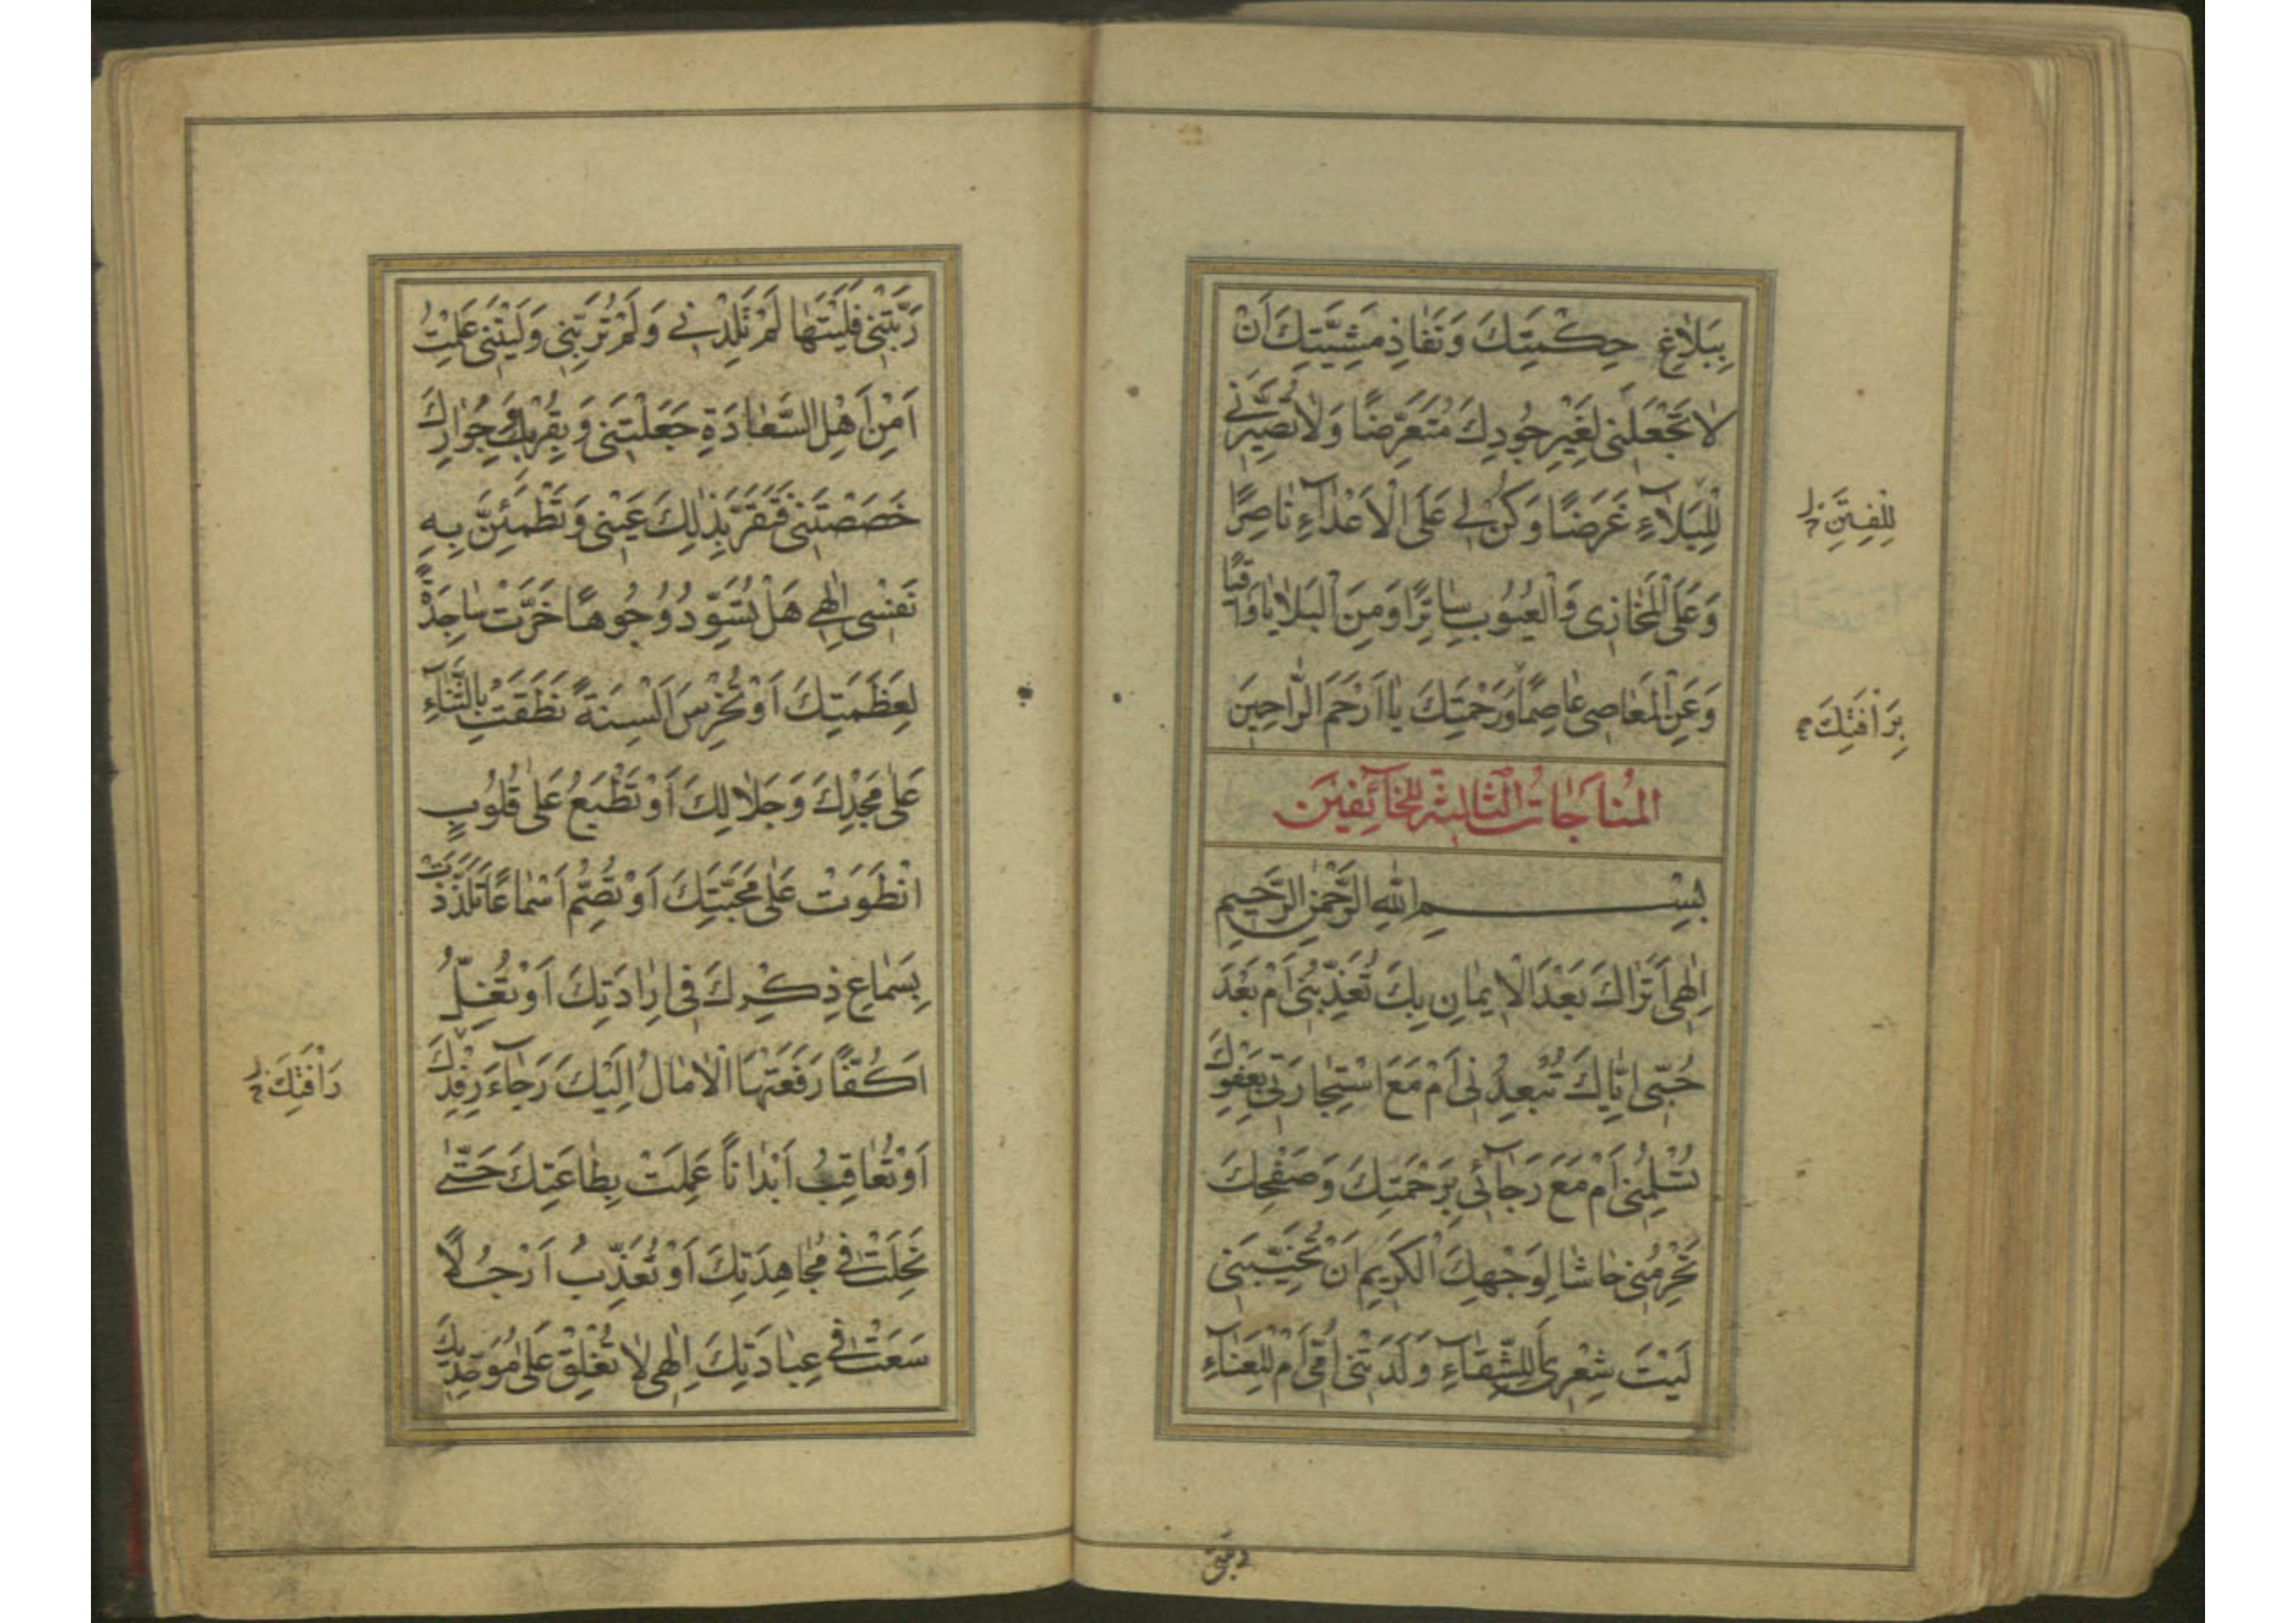 بِبَلَاغِ حِكْمَتِكَ وَنَفَاذِ مَشِيَّتِكَ اَنْ
لَا تَجْعَلَنِى لِغَيْرِ جُودِكَ مُتَعَرِّضًا وَلَا تُصَيِّرَنِى
لِلْبَلَآءِ غَرَضًا وَكُنْ لِى عَلَى الْاَعْدَآءِ نَاصِرًا
لِلْفِتَنِ
وَعَلَى الْمَخَازِى وَالْعُيُوبِ سَاتِرًا وَمِنَ الْبَلَايَا وَاقِيًا
وَعَنِ الْمَعَاصِى عَاصِمًا وَرَحْمَتِكَ يَا اَرْحَمَ الرَّاحِمِينَ
بِرَاْفَتِكَ
الْمُنَاجَاتُ الثَّالِثَةُ لِلْخَآئِفِينَ
بِسْمِ اللّٰهِ الرَّحْمٰنِ الرَّحِيمِ
اِلٰهِى اَتَرَاكَ بَعْدَ الْاِيمَانِ بِكَ تُعَذِّبُنِى اَمْ بَعْدَ
حُبِّى اِيَّاكَ تُبَعِّدُنِى اَمْ مَعَ اسْتِجَارَتِى بِعَفْوِكَ
تُسْلِمُنِى اَمْ مَعَ رَجَآئِى بِرَحْمَتِكَ وَصَفْحِكَ
تَحْرِمُنِى حَاشَا لِوَجْهِكَ الْكَرِيمِ اَنْ تُخَيِّبَنِى
لَيْتَ شِعْرِى اَلِلشَّقَآءِ وَلَدَتْنِى اُمِّى اَمْ لِلْعَنَآءِ
رَبَّتْنِى
رَبَّتْنِى فَلَيْتَهَا لَمْ تَلِدْنِى وَلَمْ تُرَبِّنِى وَلَيْتَنِى عَلِمْتُ
اَمِنْ اَهْلِ السَّعَادَةِ جَعَلْتَنِى وَبِقُرْبِكَ وَجِوَارِكَ
خَصَصْتَنِى فَتَقَرَّ بِذٰلِكَ عَيْنِى وَتَطْمَئِنَّ بِهِ
نَفْسِى اِلٰهِى هَلْ تُسَوِّدُ وُجُوهًا خَرَّتْ سَاجِدَةً
لِعَظَمَتِكَ اَوْ تُخْرِسُ اَلْسِنَةً نَطَقَتْ بِالثَّنَآءِ
عَلٰى مَجْدِكَ وَجَلَالِكَ اَوْ تَطْبَعُ عَلٰى قُلُوبٍ
انْطَوَتْ عَلٰى مَحَبَّتِكَ اَوْ تُصِمُّ اَسْمَاعًا تَلَذَّذَتْ
بِسَمَاعِ ذِكْرِكَ فِى اِرَادَتِكَ اَوْ تَغُلُّ
اَكُفًّا رَفَعَتْهَا الْاٰمَالُ اِلَيْكَ رَجَآءَ رِفْدِكَ
رَاْفَتِكَ
اَوْ تُعَاقِبُ اَبْدَانًا عَمِلَتْ بِطَاعَتِكَ حَتّٰى
نَحِلَتْ فِى مُجَاهِدَتِكَ اَوْ تُعَذِّبُ اَرْجُلًا
سَعَتْ فِى عِبَادَتِكَ اِلٰهِى لَا تُغْلِقْ عَلٰى مُوَحِّدِيكَ